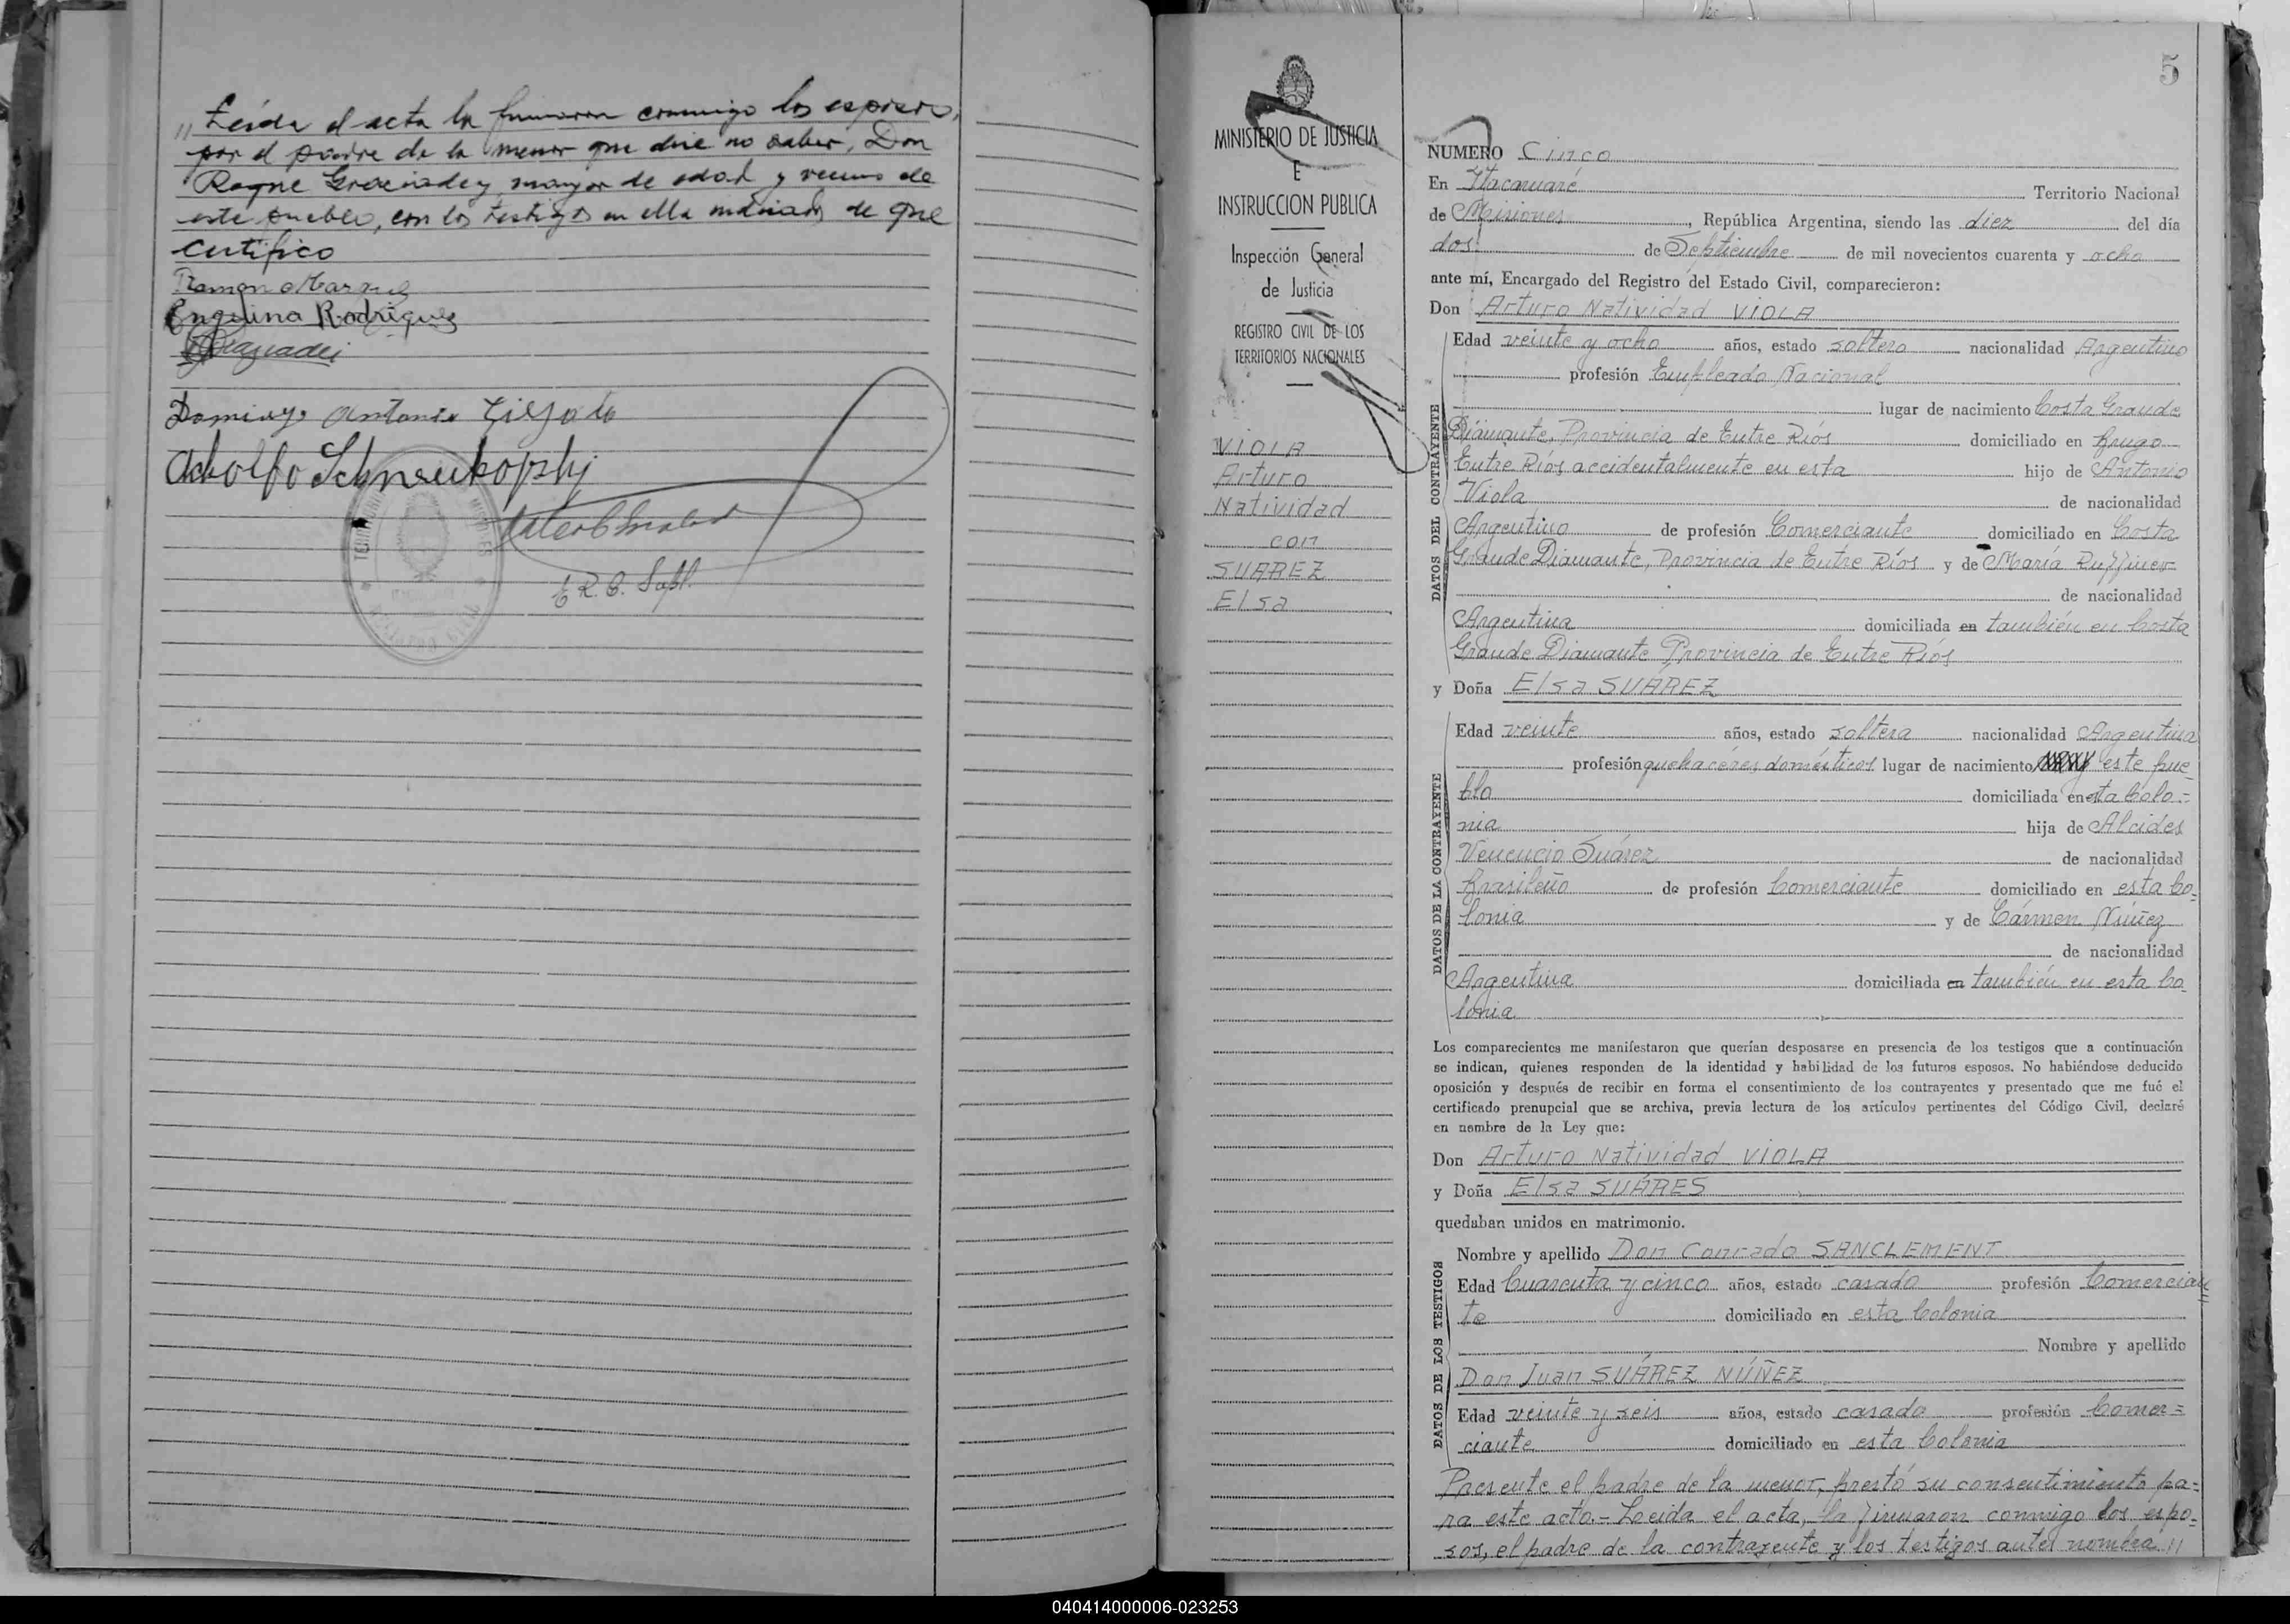 " Leída el acta la firmaron conmigo los esposos,
por el padre de la menor que dice no saber, Don
Roque Graciadey, mayor de edad y vecino de
este pueblo, con los testigos en ella de que
certifico
Ramon Marquez
Engelina Rodriguez
Domingo Antonio
Adolfo
E. R. C. Supl.
MINISTERIO DE JUSTICIA
E
INSTRUCCION PUBLICA
Inspección General
de Justicia
REGISTRO CIVIL DE LOS
TERRITORIOS NACIONALES
VIOLA
Arturo
Natividad
con
SUAREZ
Elsa
5
NUMERO Cinco
En Itacaruaré Territorio Nacional
de Misiones, República Argentina, siendo las diez del día
dos de Septiembre de mil novecientos cuarenta y ocho
ante mí, Encargado del Registro del Estado Civil, comparecieron:
Don Arturo Natividad VIOLA
DATOS DEL CONTRAYENTE
Edad veinte y ocho años, estado soltero nacionalidad Argentino
profesión Empleado Nacional
lugar de nacimiento Costa Grande
Diamante, Provincia de Entre Ríos domiciliado en Crugo
Entre Ríos accidentalmente en esta hijo de Antonio
Viola de nacionalidad
Argentino de profesión Comerciante domiciliado en Costa
Grande Diamante, Provincia de Entre Ríos y de María Ruffiner
de nacionalidad
Argentina domiciliada en también en Costa
Grande Diamante Provincia de Entre Ríos
y Doña Elsa SUÁREZ
DATOS DE LA CONTRAYENTE
Edad veinte años, estado soltera nacionalidad Argentina
profesión quehaceres domésticos lugar de nacimiento este pue-
blo domiciliada en esta Colo=
nia hija de Alcides
Venencio Suárez de nacionalidad
brasileño de profesión Comerciante domiciliado en esta Co-
lonia y de Cármen Núñez
de nacionalidad
Argentina domiciliada en también en esta Co-
lonia
Los comparecientes me manifestaron que querían desposarse en presencia de los testigos que a continuación
se indican, quienes responden de la identidad y habilidad de los futuros esposos. No habiéndose deducido
oposición y después de recibir en forma el consentimiento de los contrayentes y presentado que me fué el
certificado prenupcial que se archiva, previa lectura de los artículos pertinentes del Código Civil, declaré
en nombre de la Ley que:
Don Arturo Natividad VIOLA
y Doña Elsa SUÁRES
quedaban unidos en matrimonio.
DATOS DE LOS TESTIGOS
Nombre y apellido Don Conrado SANCLEMENT
Edad Cuarenta y cinco años, estado casado profesión Comercian=
te domiciliado en esta Colonia
Nombre y apellido
Don Juan SUÁREZ NÚÑEZ
Edad veinte y seis años, estado casado profesión Comer=
ciante domiciliado en esta Colonia
Presente el padre de la menor, prestó su consentimiento pa-
ra este acto.- Leida el acta, la firmaron conmigo los espo-
sos, el padre de la contrayente y los testigos antes nombra "
040414000006-023253